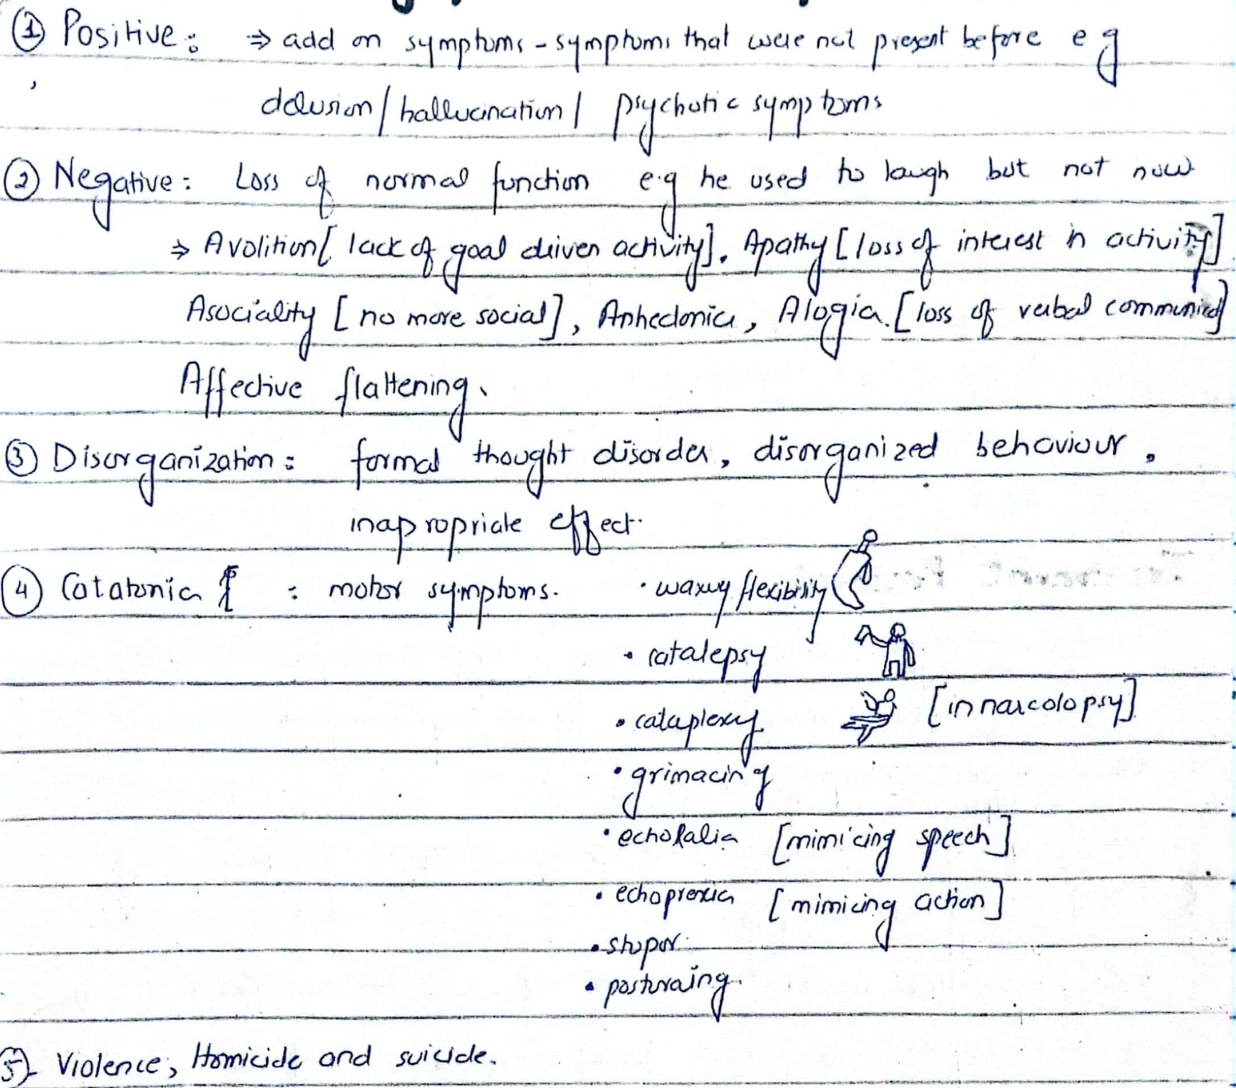 ① Positive: ⇒ add on symptoms - symptoms that were not present before e g
delusion / hallucination / psychotic symptoms
② Negative: Loss of normal function e.g he used to laugh but not now
⇒ Avolition [lack of goal driven activity], Apathy [loss of interest in activity]
Asociality [no more social], Anhedonia, Alogia. [loss of verbal
Affective flattening,
③ Disorganization: formal thought disorder, disorganized behaviour,
inapropriate effect.
④ Catatonia : motor symptoms. • waxy flexibility
• catalepsy
• cataplexy [in narcolopsy]
• grimacing
• echolalia [mimicing speech]
• echopraxia [mimicing action]
• stupor.
• posturaing.
⑤ Violence, Homicide and suicide.